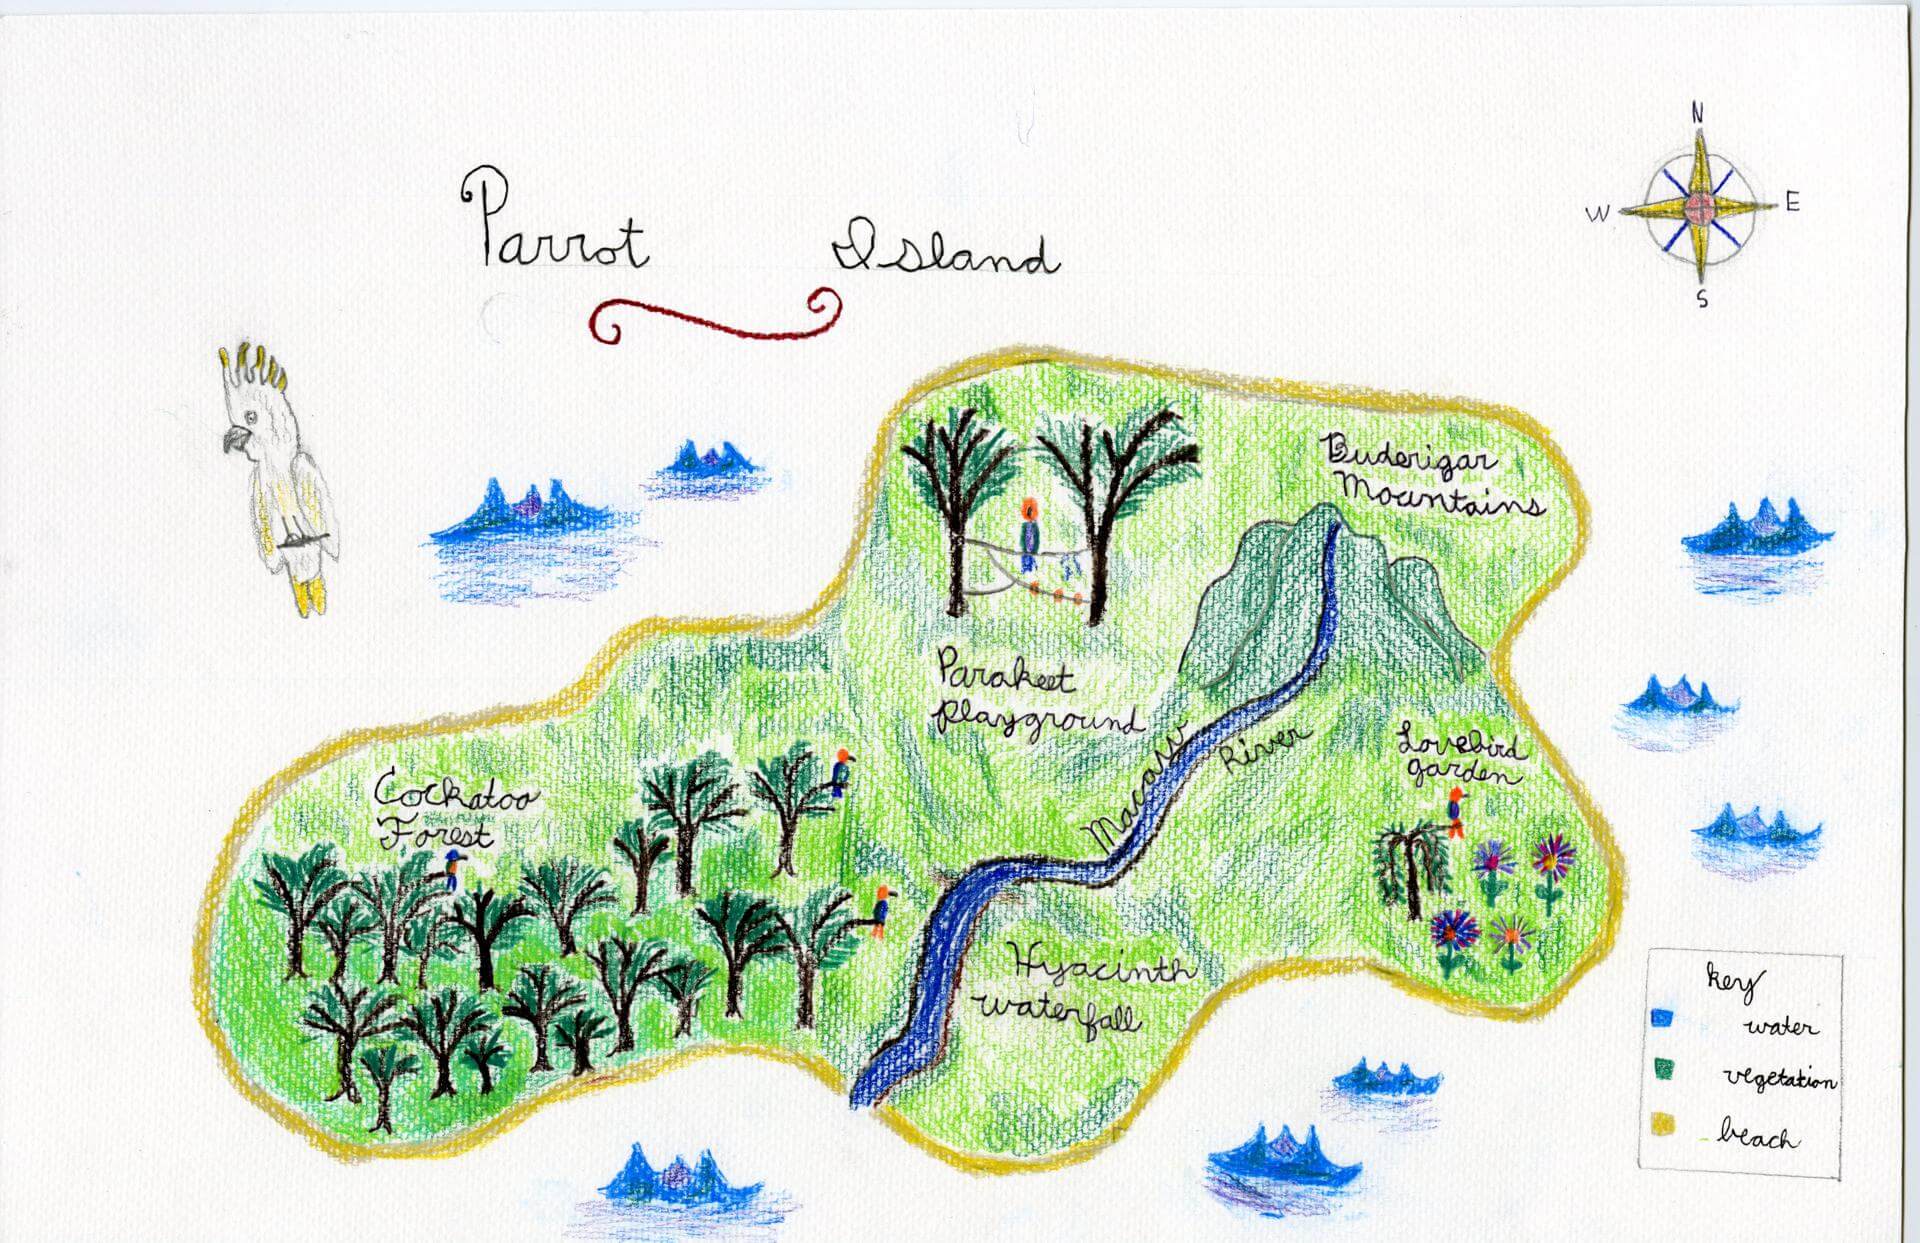 Parrot Island
N
W E
S
Buderigar
Mountains
Parakeet
Playground
Macaw River
Lovebird
garden
Cockatoo
Forest
Hyacinth
waterfall
key
water
vegetation
beach